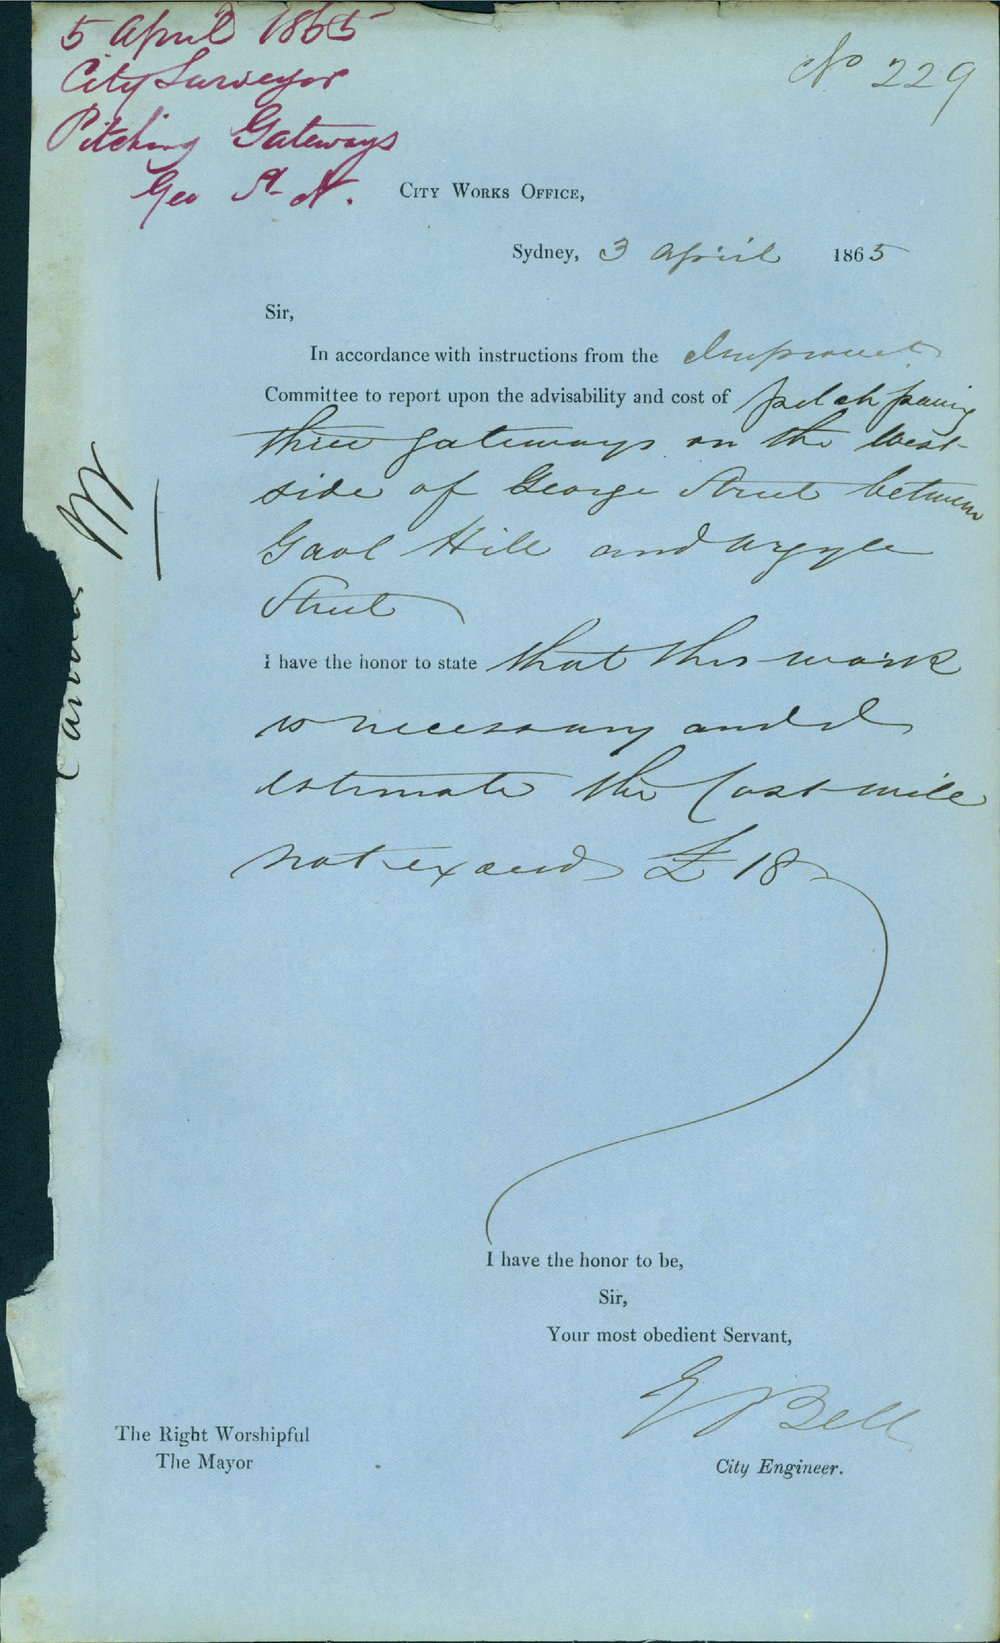 5 April 1865
City Surveyor
Pitching Gateways
Geo St N.
No 229
City Works Office,
Sydney, 3 April 1865
Sir,
In accordance with instructions from the Improvet
Committee to report upon the advisability and cost of pitch paving
three gateways on the West
side of George Street between
Gaol Hill and Argyle
Street
I have the honor to state that this work
is necessary and I
estimate the Cost will
not exceed £18
I have the honor to be,
Sir,
Your most obedient Servant,
E Bell
City Engineer.
The Right Worshipful
The Mayor